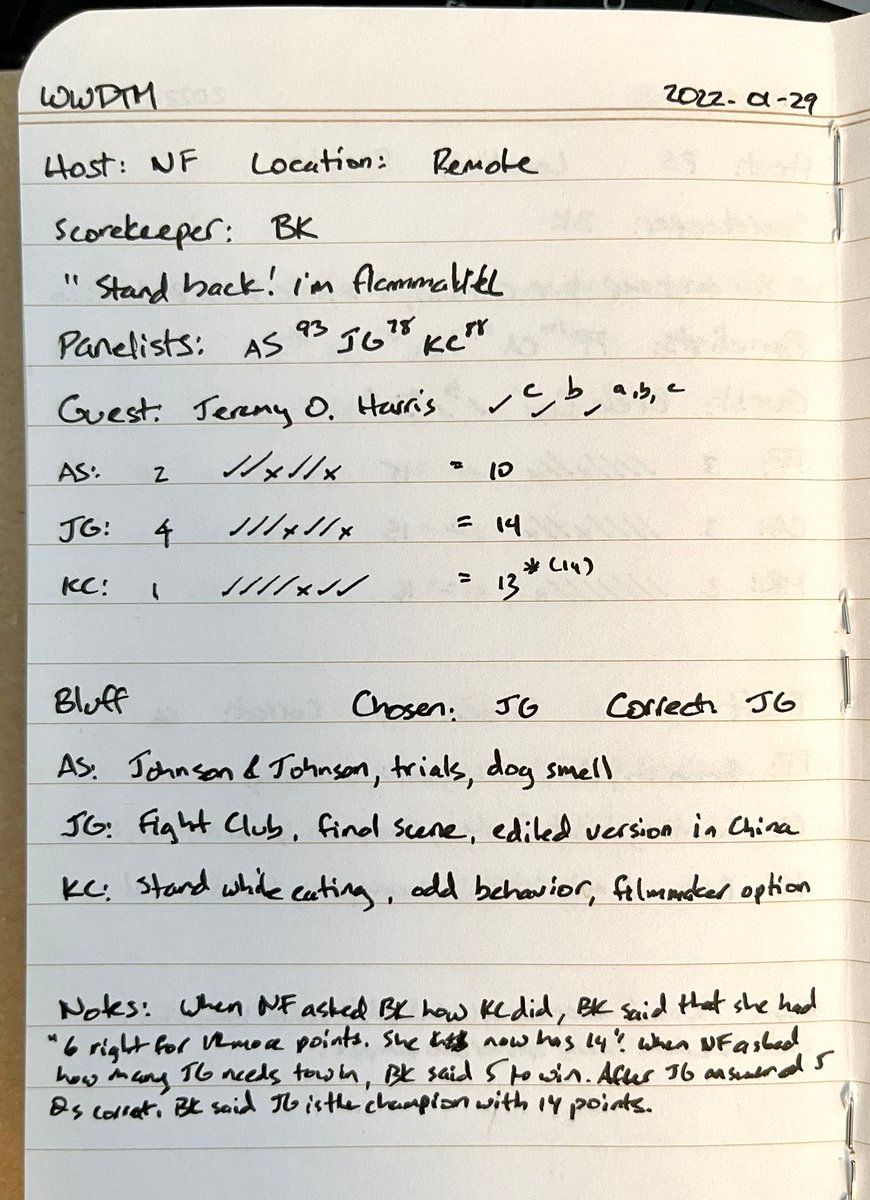 WWDTM 2022-01-29
Host: NF Location: Remote
Scorekeeper: BK
" Stand back! I'm flammable
Panelists: AS 93 JG 78 KC 88
Guest: Jeremy O. Harris ✓ c ✓ b ✓ a, b, c
AS: 2 ✓✓x✓✓x = 10
JG: 4 ✓✓✓x✓✓x = 14
KC: 1 ✓✓✓✓x✓✓ = 13 * (14)
Bluff Chosen: JG Correct: JG
AS: Johnson & Johnson, trials, dog smell
JG: Fight Club, final scene, edited version in China
KC: Stand while eating, odd behavior, filmmaker option
Notes: When NF asked BK how KC did, BK said that she had
"6 right for 12 more points. She now has 14". When NF asked
how many JG needs to win, BK said 5 to win. After JG answered 5
Qs correct, BK said JG is the champion with 14 points.